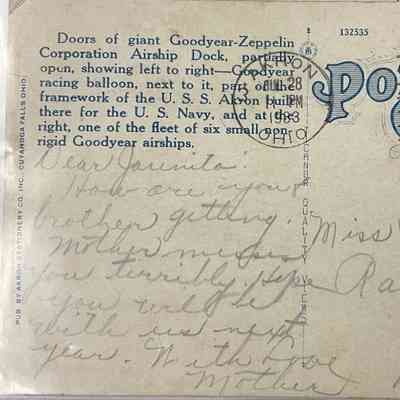 132535
Doors of giant Goodyear-Zeppelin
Corporation Airship Dock, partially
open, showing left to right—Goodyear
racing balloon, next to it, part of the
framework of the U. S. S. Akron built
there for the U. S. Navy, and at the
right, one of the fleet of six small non-
rigid Goodyear airships.
AKRON
JUL 28
PM
1933
OHIO
Po
PUB. BY AKRON STATIONERY CO. INC., CUYAHOGA FALLS, OHIO.
QUALITY VIEWS
Dear Juanita:
How are you &
brother getting.
Mother misses
you terribly. Hope
you will be
with us next
year. With Love
Mother
Miss
Ra